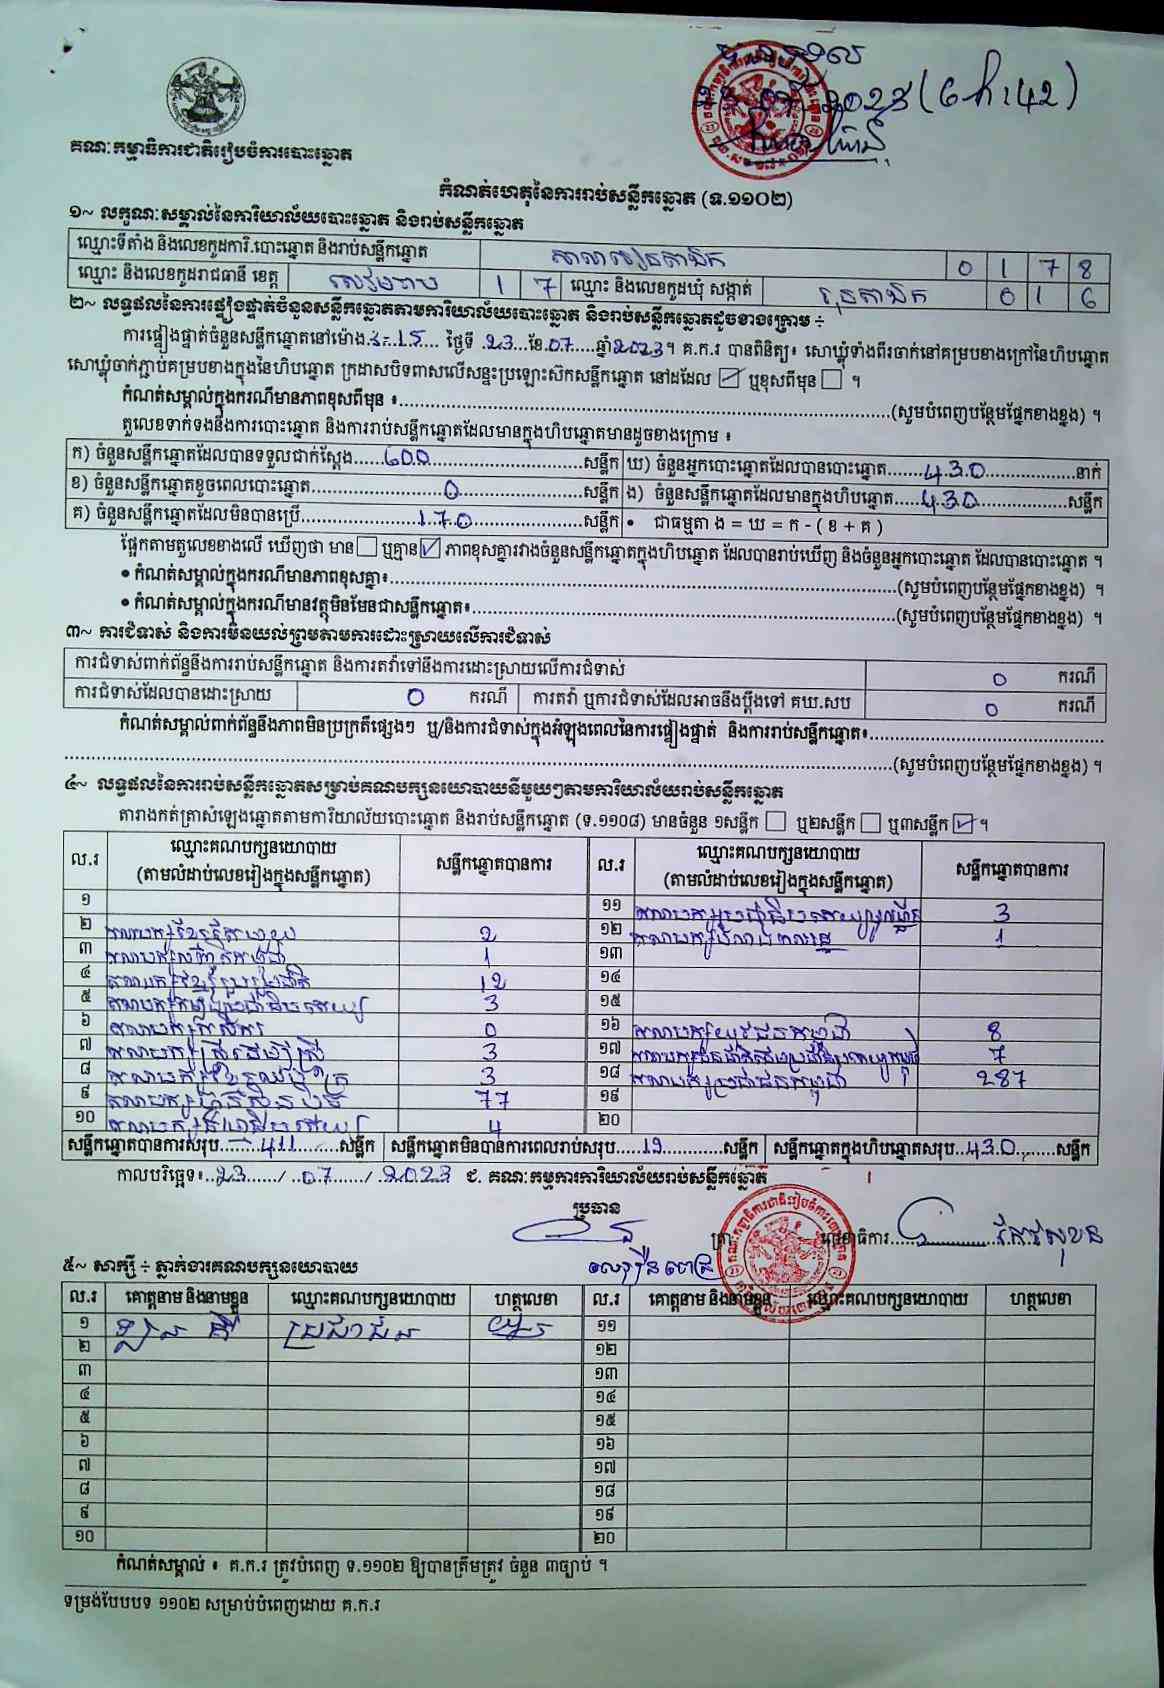 គណៈកម្មាធិការជាតិរៀបចំការបោះឆ្នោត
2023 (6h:42)
កំណត់ហេតុនៃការរាប់សន្លឹកឆ្នោត (ទ.១១០២)
១~ លក្ខណៈសម្គាល់នៃការិយាល័យបោះឆ្នោត និងរាប់សន្លឹកឆ្នោត
ឈ្មោះទីតាំង និងលេខកូដការិ.បោះឆ្នោត និងរាប់សន្លឹកឆ្នោត 0 1 7 8
ឈ្មោះ និងលេខកូដរាជធានី ខេត្ត សៀមរាប 1 7 ឈ្មោះ និងលេខកូដឃុំ សង្កាត់ រុនតាឯក 0 1 6
២~ លទ្ធផលនៃការផ្ទៀងផ្ទាត់ចំនួនសន្លឹកឆ្នោតតាមការិយាល័យបោះឆ្នោត និងរាប់សន្លឹកឆ្នោតដូចខាងក្រោម ÷
ការផ្ទៀងផ្ទាត់ចំនួនសន្លឹកឆ្នោតនៅម៉ោង ថ្ងៃទី 23 ខែ 07 ឆ្នាំ 2023 ។ គ.ក.រ បានពិនិត្យ៖ សោឃ្លុំទាំងពីរចាក់នៅគម្របខាងក្រៅនៃហិបឆ្នោត
សោឃ្លុំចាក់ភ្ជាប់គម្របខាងក្នុងនៃហិបឆ្នោត ក្រដាសបិទពាសលើសន្ទះប្រឡោះស៊កសន្លឹកឆ្នោត នៅដដែល ☑ ឬខុសពីមុន ☐ ។
កំណត់សម្គាល់ក្នុងករណីមានភាពខុសពីមុន ៖..........(សូមបំពេញបន្ថែមផ្នែកខាងខ្នង) ។
តួលេខទាក់ទងនឹងការបោះឆ្នោត និងការរាប់សន្លឹកឆ្នោតដែលមានក្នុងហិបឆ្នោតមានដូចខាងក្រោម ៖
ក) ចំនួនសន្លឹកឆ្នោតដែលបានទទួលជាក់ស្តែង 600 សន្លឹក ឃ) ចំនួនអ្នកបោះឆ្នោតដែលបានបោះឆ្នោត 430 នាក់
ខ) ចំនួនសន្លឹកឆ្នោតខូចពេលបោះឆ្នោត 0 សន្លឹក ង) ចំនួនសន្លឹកឆ្នោតដែលមានក្នុងហិបឆ្នោត 430 សន្លឹក
គ) ចំនួនសន្លឹកឆ្នោតដែលមិនបានប្រើ 170 សន្លឹក • ជាធម្មតា ង = ឃ = ក - ( ខ + គ )
ផ្អែកតាមតួលេខខាងលើ ឃើញថា មាន ☐ ឬគ្មាន ☑ ភាពខុសគ្នារវាងចំនួនសន្លឹកឆ្នោតក្នុងហិបឆ្នោត ដែលបានរាប់ឃើញ និងចំនួនអ្នកបោះឆ្នោត ដែលបានបោះឆ្នោត ។
• កំណត់សម្គាល់ក្នុងករណីមានភាពខុសគ្នា៖..........(សូមបំពេញបន្ថែមផ្នែកខាងខ្នង) ។
• កំណត់សម្គាល់ក្នុងករណីមានវត្ថុមិនមែនជាសន្លឹកឆ្នោត៖..........(សូមបំពេញបន្ថែមផ្នែកខាងខ្នង) ។
៣~ ការជំទាស់ និងការមិនយល់ព្រមតាមការដោះស្រាយលើការជំទាស់
ការជំទាស់ពាក់ព័ន្ធនឹងការរាប់សន្លឹកឆ្នោត និងការតវ៉ាទៅនឹងការដោះស្រាយលើការជំទាស់ 0 ករណី
ការជំទាស់ដែលបានដោះស្រាយ 0 ករណី ការតវ៉ា ឬការជំទាស់ដែលអាចនឹងប្តឹងទៅ គឃ.សប 0 ករណី
កំណត់សម្គាល់ពាក់ព័ន្ធនឹងភាពមិនប្រក្រតីផ្សេងៗ ឬ/និងការជំទាស់ក្នុងអំឡុងពេលនៃការផ្ទៀងផ្ទាត់ និងការរាប់សន្លឹកឆ្នោត៖..........
..........(សូមបំពេញបន្ថែមផ្នែកខាងខ្នង) ។
៤~ លទ្ធផលនៃការរាប់សន្លឹកឆ្នោតសម្រាប់គណបក្សនយោបាយនីមួយៗតាមការិយាល័យរាប់សន្លឹកឆ្នោត
តារាងកត់ត្រាសំឡេងឆ្នោតតាមការិយាល័យបោះឆ្នោត និងរាប់សន្លឹកឆ្នោត (ទ.១១០៨) មានចំនួន ១សន្លឹក ☐ ឬ២សន្លឹក ☐ ឬ៣សន្លឹក ☑ ។
ល.រ ឈ្មោះគណបក្សនយោបាយ (តាមលំដាប់លេខរៀងក្នុងសន្លឹកឆ្នោត) សន្លឹកឆ្នោតបានការ ល.រ ឈ្មោះគណបក្សនយោបាយ (តាមលំដាប់លេខរៀងក្នុងសន្លឹកឆ្នោត) សន្លឹកឆ្នោតបានការ
១ ១១ 3
២ 2 ១២ 1
៣ 1 ១៣
៤ 12 ១៤
៥ 3 ១៥
៦ 0 ១៦ គណបក្សយុវជនកម្ពុជា 8
៧ គណបក្សស្រីដើម្បីស្រី 3 ១៧ 7
៨ 3 ១៨ គណបក្សប្រជាជនកម្ពុជា 287
៩ គណបក្សហ៊្វុនស៊ិនប៉ិច 77 ១៩
១០ 4 ២០
សន្លឹកឆ្នោតបានការសរុប 411 សន្លឹក សន្លឹកឆ្នោតមិនបានការពេលរាប់សរុប 19 សន្លឹក សន្លឹកឆ្នោតក្នុងហិបឆ្នោតសរុប 430 សន្លឹក
កាលបរិច្ឆេទ៖ 23 / 07 / 2023 ជ. គណៈកម្មការការិយាល័យរាប់សន្លឹកឆ្នោត
ប្រធាន
ត្រា លេខាធិការ
៥~ សាក្សី ÷ ភ្នាក់ងារគណបក្សនយោបាយ
ល.រ គោត្តនាម និងនាមខ្លួន ឈ្មោះគណបក្សនយោបាយ ហត្ថលេខា ល.រ គោត្តនាម និងនាមខ្លួន ឈ្មោះគណបក្សនយោបាយ ហត្ថលេខា
១ ប្រជាជន ១១
២ ១២
៣ ១៣
៤ ១៤
៥ ១៥
៦ ១៦
៧ ១៧
៨ ១៨
៩ ១៩
១០ ២០
កំណត់សម្គាល់ ៖ គ.ក.រ ត្រូវបំពេញ ទ.១១០២ ឱ្យបានត្រឹមត្រូវ ចំនួន ៣ច្បាប់ ។
ទម្រង់បែបបទ ១១០២ សម្រាប់បំពេញដោយ គ.ក.រ